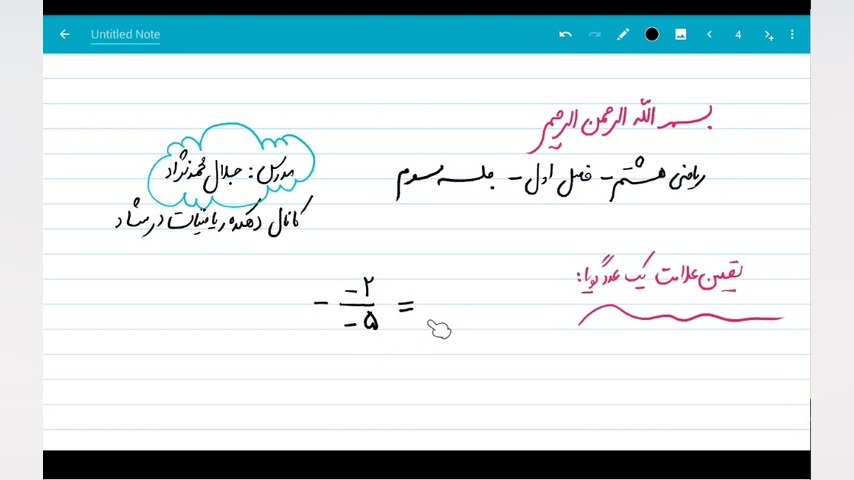 Untitled Note
4
بسم الله الرحمن الرحیم
ریاضی هشتم - فصل اول - جلسه سوم
مدرس: جلال محمدنژاد
کانال دهکده ریاضیات در شاد
تعیین علامت یک عدد گویا:
- -۲/-۵ =